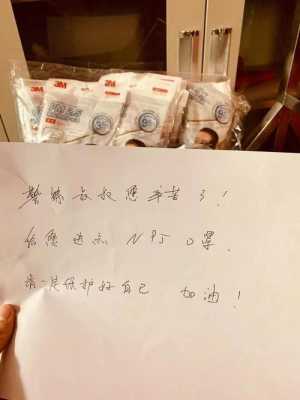 3M
3M
警察叔叔您辛苦了!
给您送 N95口罩.
请一定保护好自己 加油!